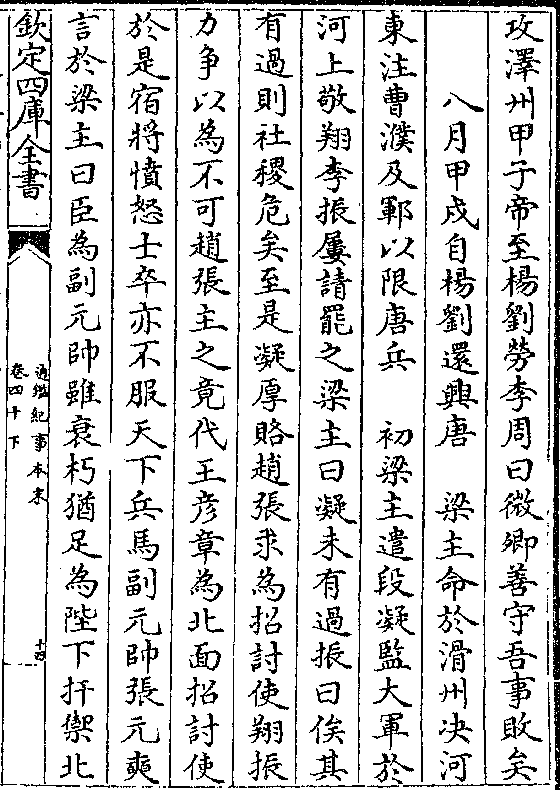 攻澤州甲子帝至楊劉勞李周曰微卿善守吾事敗矣
八月甲戍自楊劉還興唐　梁主命於滑州决河
東注曹濮及鄆以限唐兵　初梁主遣段凝監大軍於
河上敬翔李振屢請罷之梁主曰凝未有過振曰俟其
有過則社稷危矣至是凝厚賂趙張求為招討使翔振
力争以為不可趙張主之竟代王彦章為北面招討使
於是宿將憤怒士卒亦不服天下兵馬副元帥張元奭
言於梁主曰臣為副元帥雖衰朽猶足為陛下扞禦北
欽定四庫全書
通鑑紀事本末
卷四十下
十四